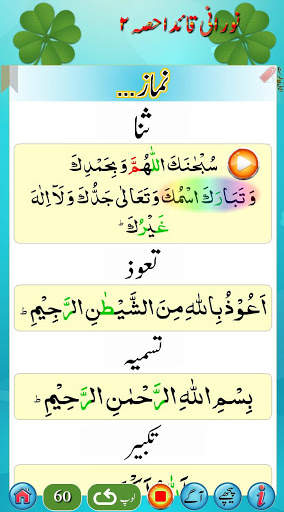 نورانی قائدا حصہ ۲
نماز...
ثنا
سُبْحٰنَكَ اللّٰهُمَّ وَبِحَمْدِكَ
وَتَبَارَكَ اسْمُكَ وَتَعَالٰى جَدُّكَ وَلَآ اِلٰهَ
غَيْرُكَ ؕ
تعوذ
اَعُوْذُ بِاللّٰهِ مِنَ الشَّيْطٰنِ الرَّجِيْمِ ؕ
تسمیہ
بِسْمِ اللّٰهِ الرَّحْمٰنِ الرَّحِيْمِ ؕ
تکبیر
60 اوپر پیچھے آگے